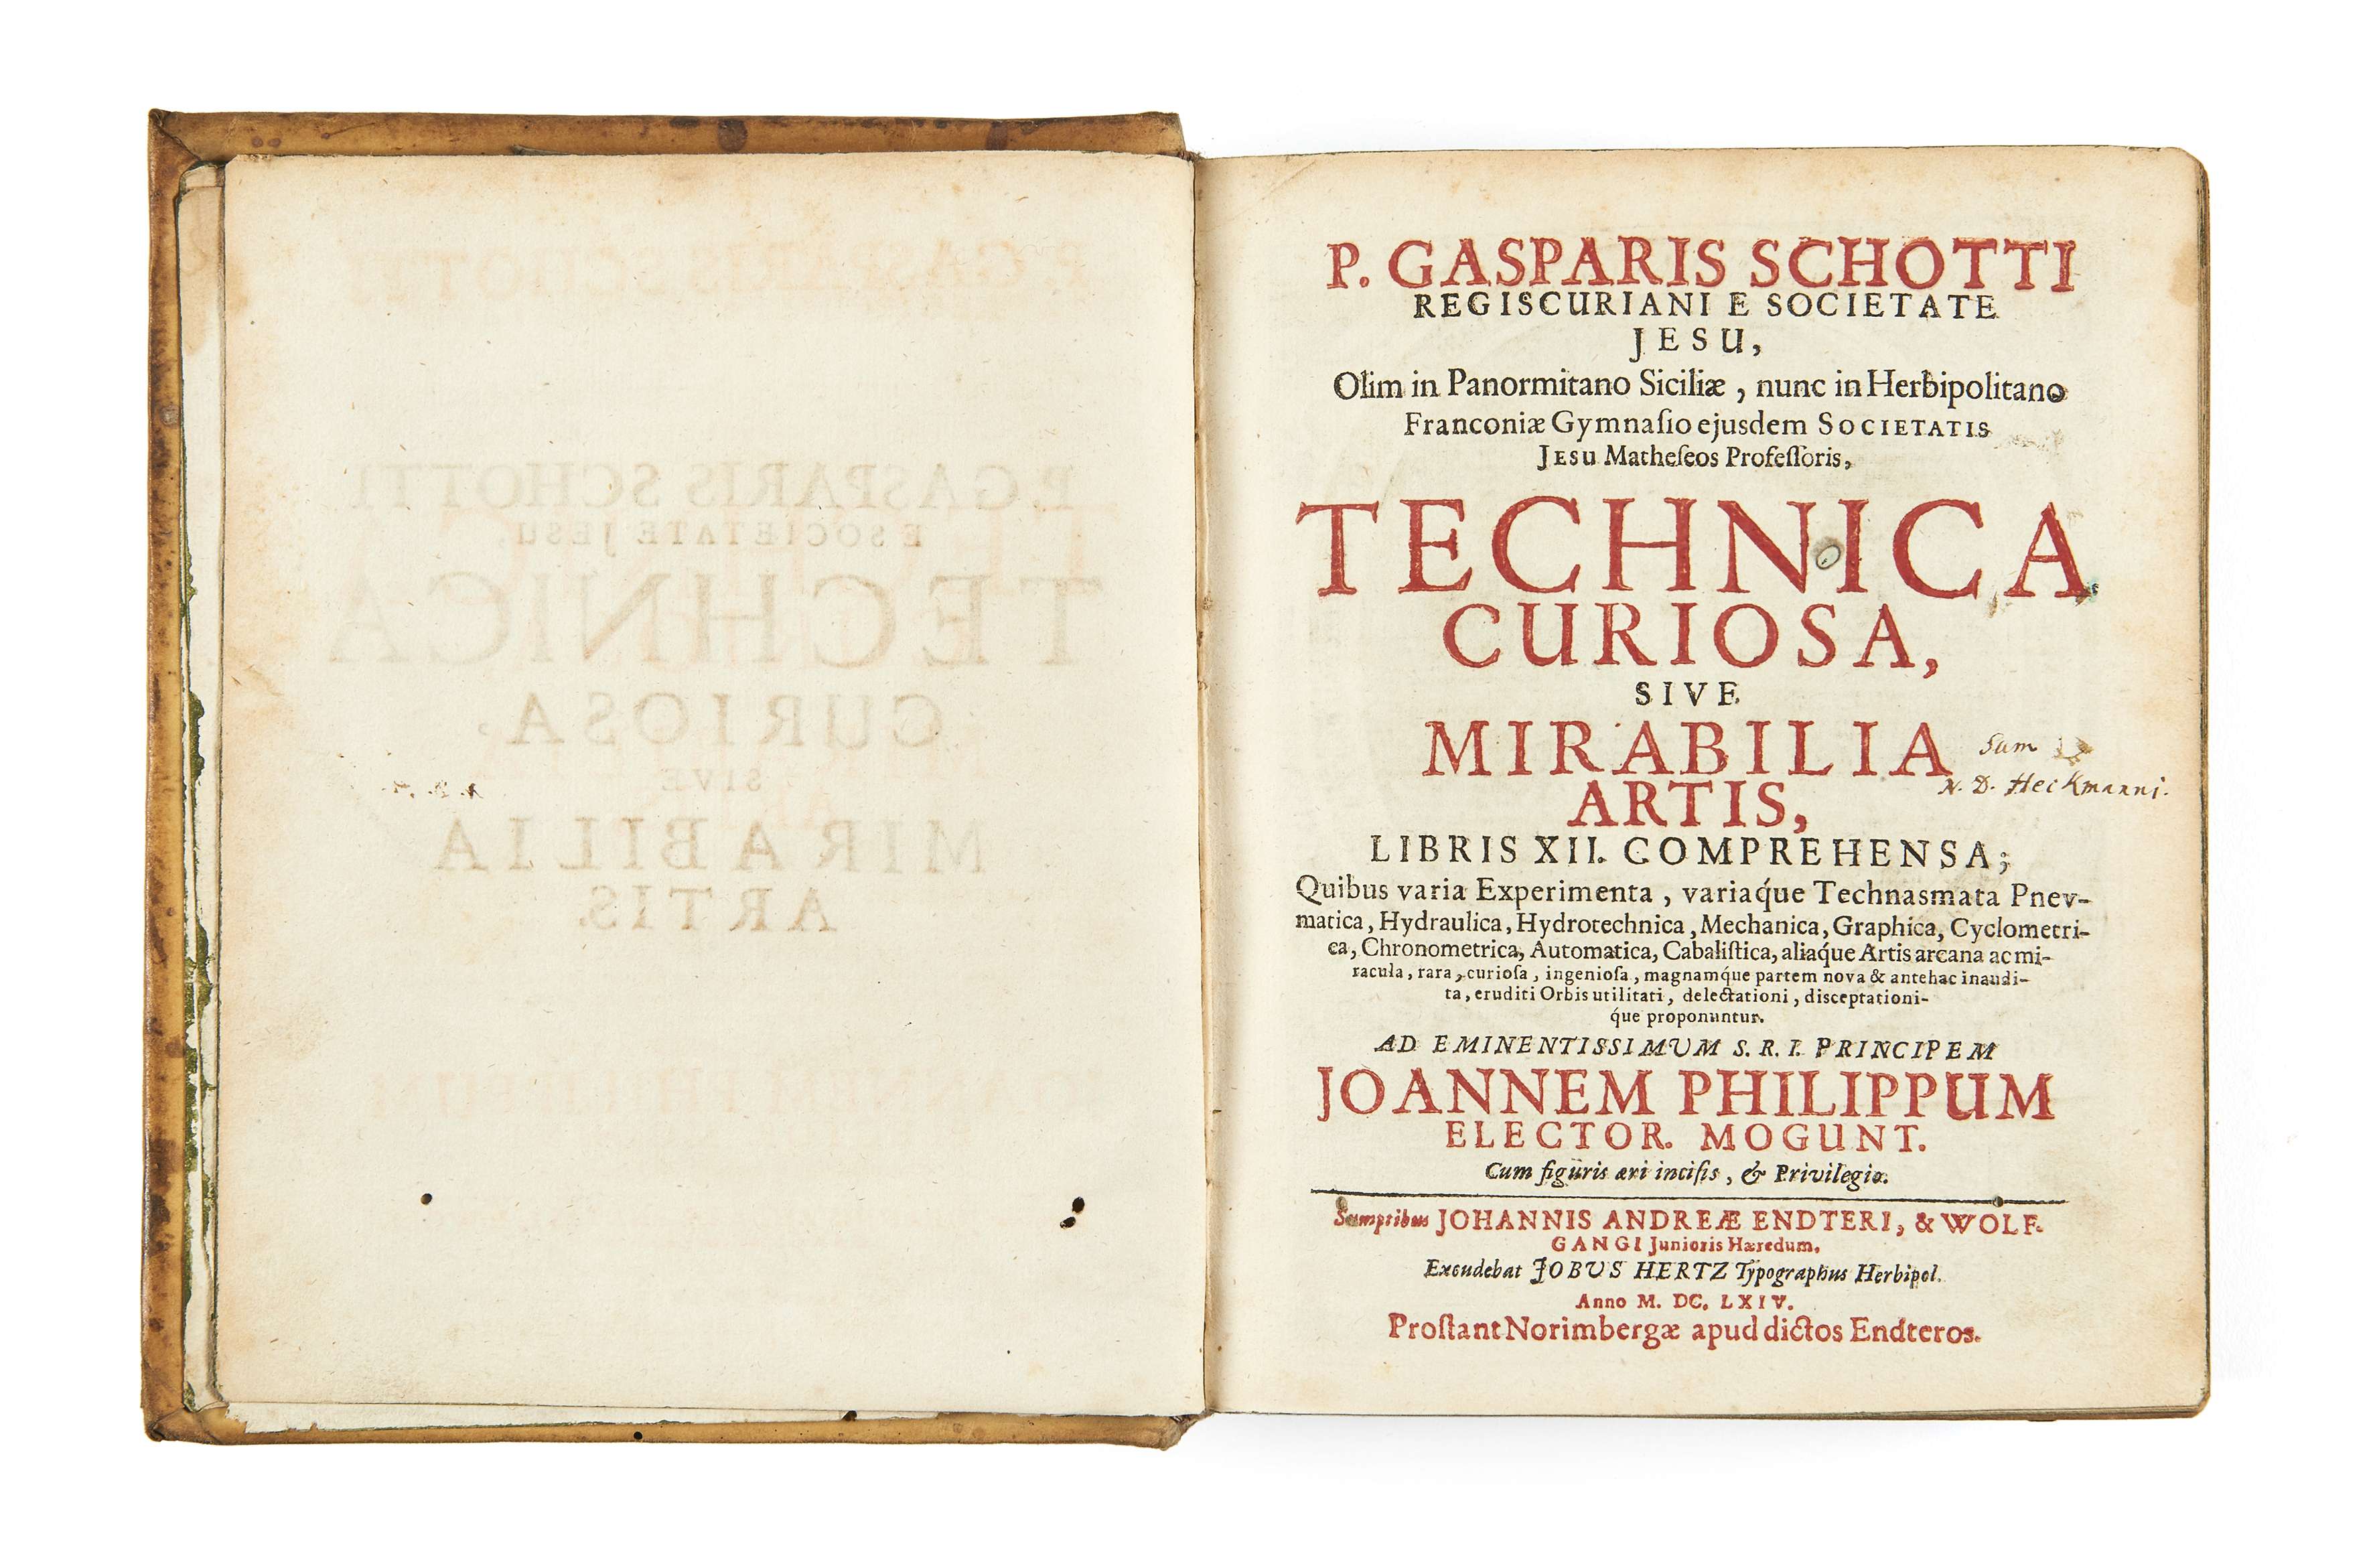 P. GASPARIS SCHOTTI
E SOCIETATE JESU,
TECHNICA
CURIOSA,
SIVE
MIRABILIA
ARTIS.
P. GASPARIS SCHOTTI
REGISCURIANI E SOCIETATE
JESU,
Olim in Panormitano Siciliæ, nunc in Herbipolitano
Franconiæ Gymnaſio ejusdem SOCIETATIS
JESU Matheſeos Profeſſoris,
TECHNICA
CURIOSA,
SIVE
MIRABILIA
ARTIS,
Sum
N. D. Heckmanni.
LIBRIS XII. COMPREHENSA;
Quibus varia Experimenta, variaq́ue Technasmata Pnev-
matica, Hydraulica, Hydrotechnica, Mechanica, Graphica, Cyclometri-
ca, Chronometrica, Automatica, Cabaliſtica, aliaq́ue Artis arcana ac mi-
racula, rara, curioſa, ingenioſa, magnamq́ue partem nova & antehac inaudi-
ta, eruditi Orbis utilitati, delectationi, disceptationi-
q́ue proponuntur.
AD EMINENTISSIMUM S. R. I. PRINCIPEM
JOANNEM PHILIPPUM
ELECTOR. MOGUNT.
Cum figuris æri inciſis, & Privilegio.
Sumptibus JOHANNIS ANDREÆ ENDTERI, & WOLF-
GANGI Junioris Hæredum.
Excudebat JOBUS HERTZ Typographus Herbipol.
Anno M. DC. LXIV.
Proſtant Norimbergæ apud dictos Endteros.